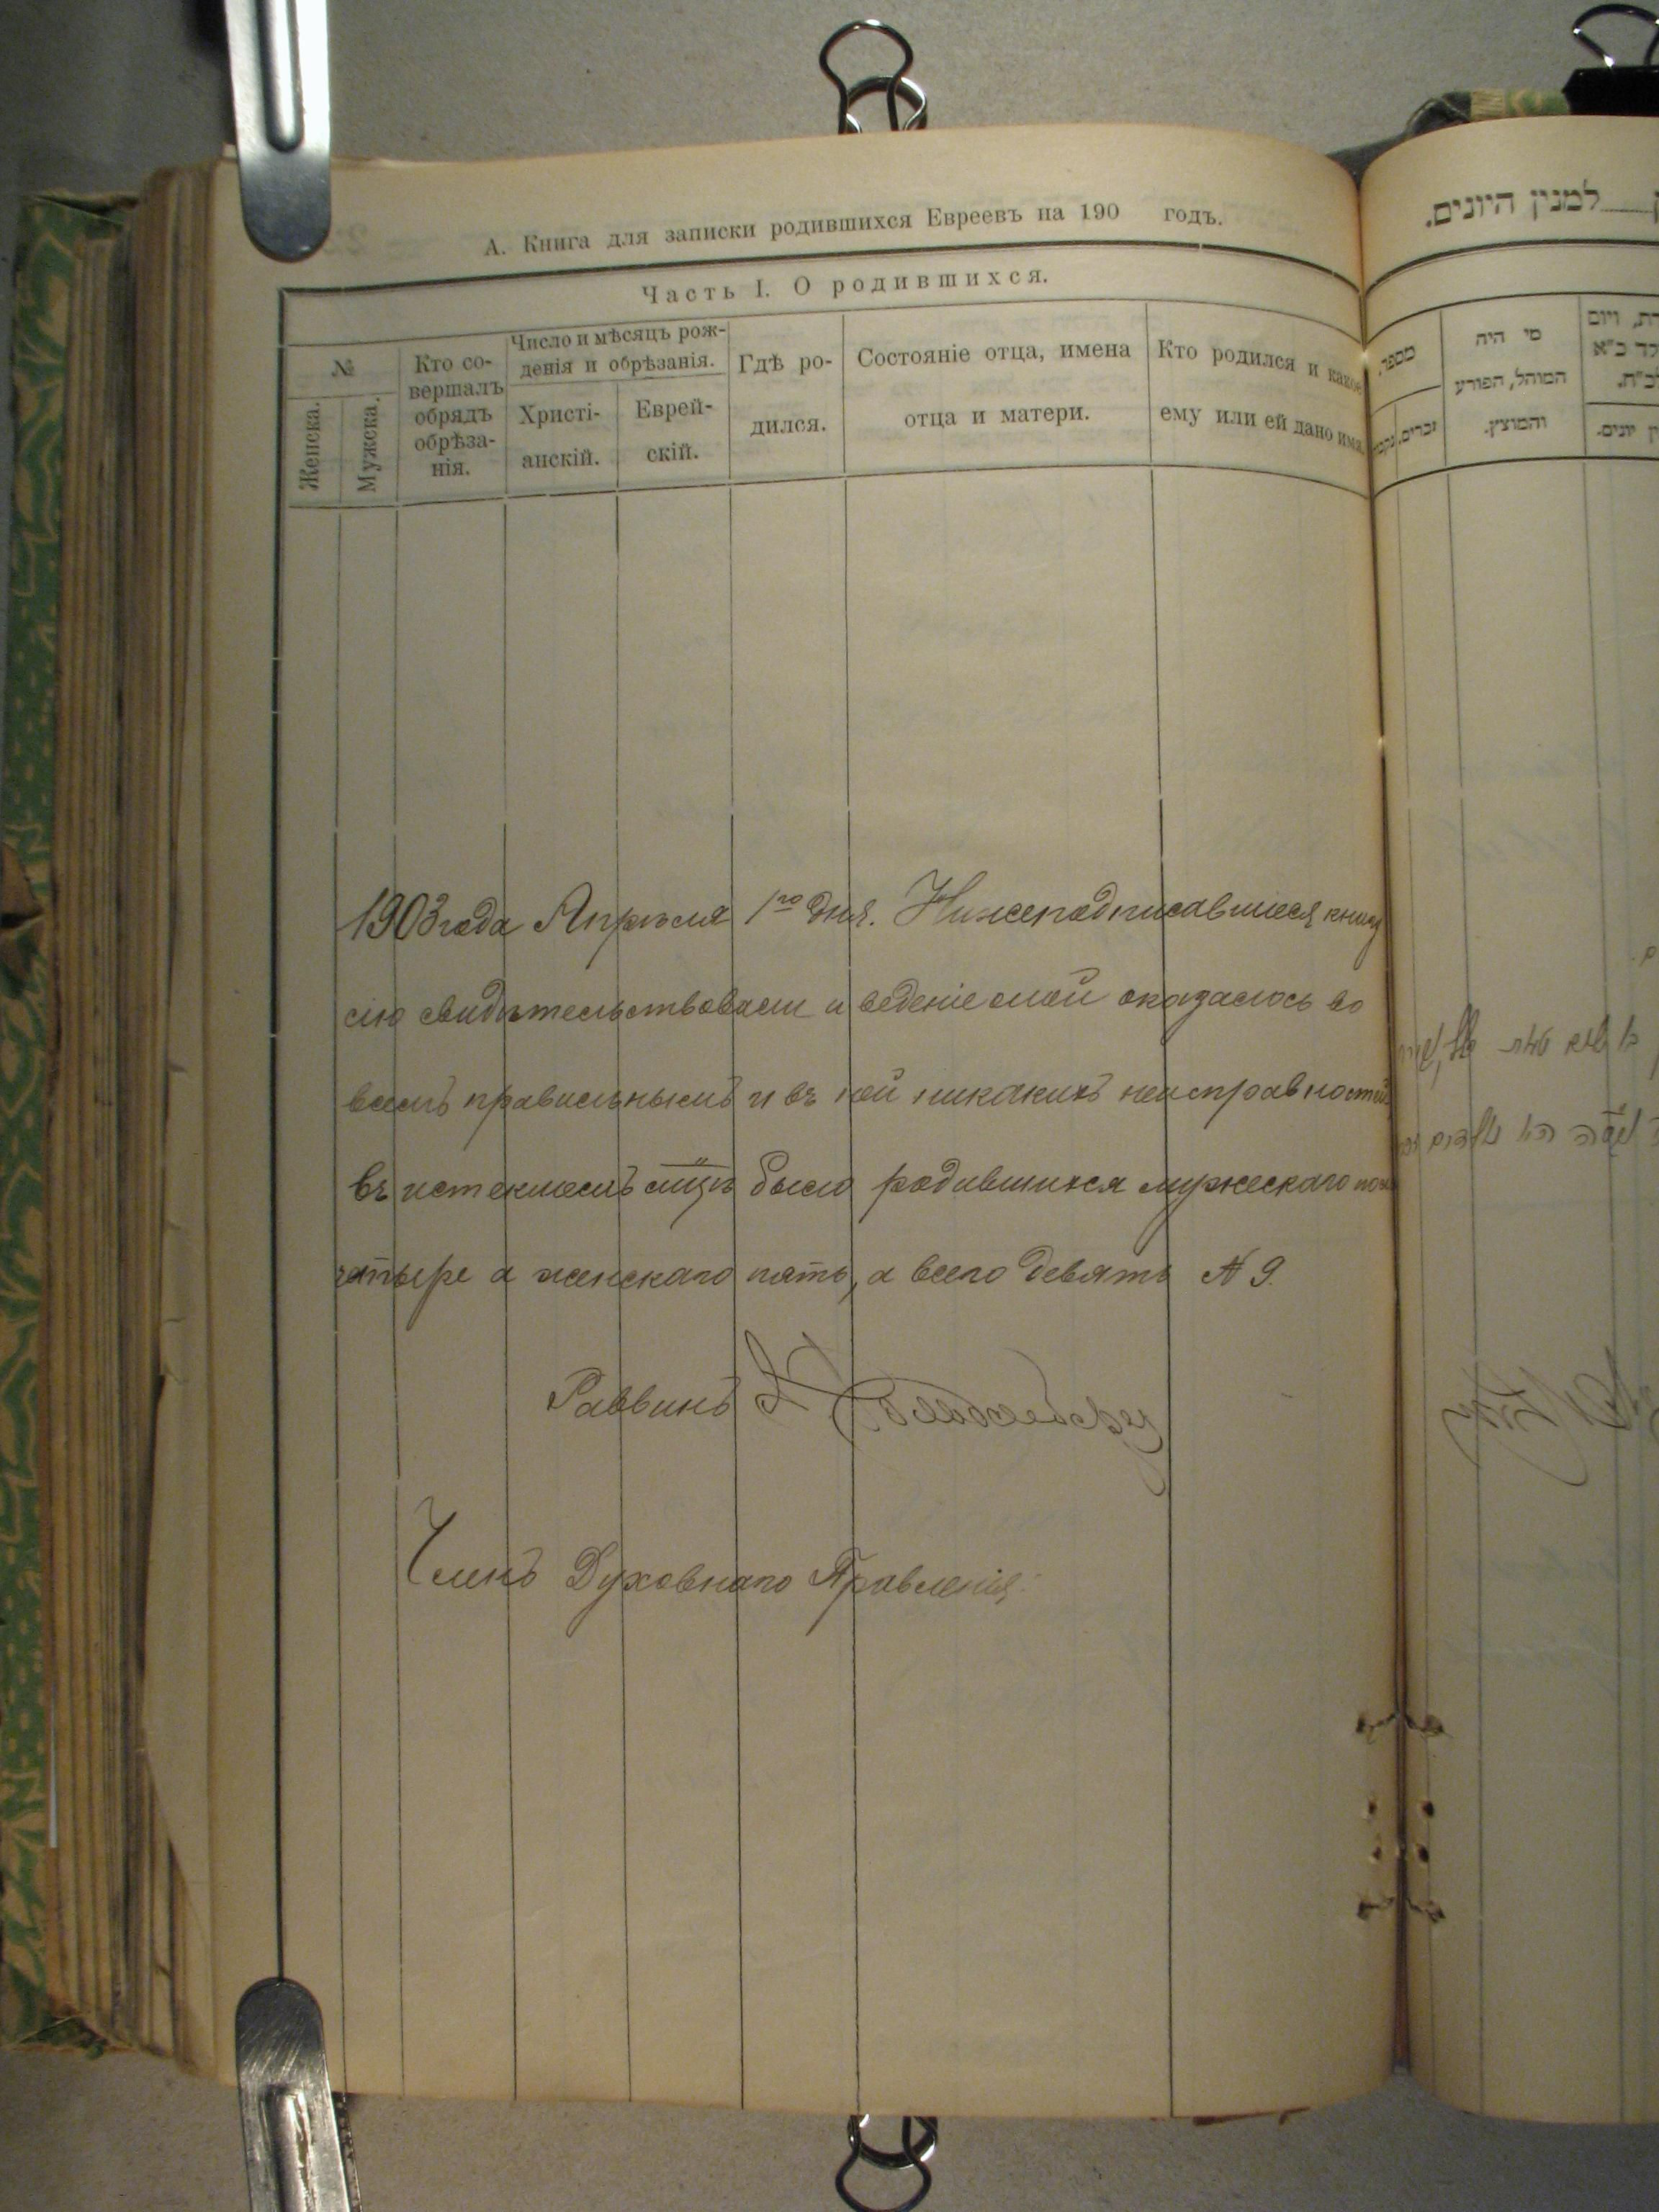 А. Книга для записки родившихся Евреевъ на 190 годъ.
Часть I. О родившихся.
№
Женска.
Мужска.
Кто со-
вершалъ
обрядъ
обрѣза-
нія.
Число и мѣсяцъ рож-
денія и обрѣзанія.
Христі-
анскій.
Еврей-
скій.
Гдѣ ро-
дился.
Состояніе отца, имена
отца и матери.
Кто родился и какое
ему или ей дано имя.
1903 года Апрѣля 1го дня. Нижеподписавшіеся книгу
сію свидѣтельствовали и веденіе оной оказалось во
всемъ правильнымъ и въ ней никакихъ неисправностей
въ истекшемъ мцѣ было родившихся мужескаго пола
четыре а женскаго пять, а всего девять № 9.
Раввинъ
Членъ Духовнаго Правленія:
למנין היונים.
מספר.
זכרים.
מי היה
המוהל, הפורע
והמוצץ.